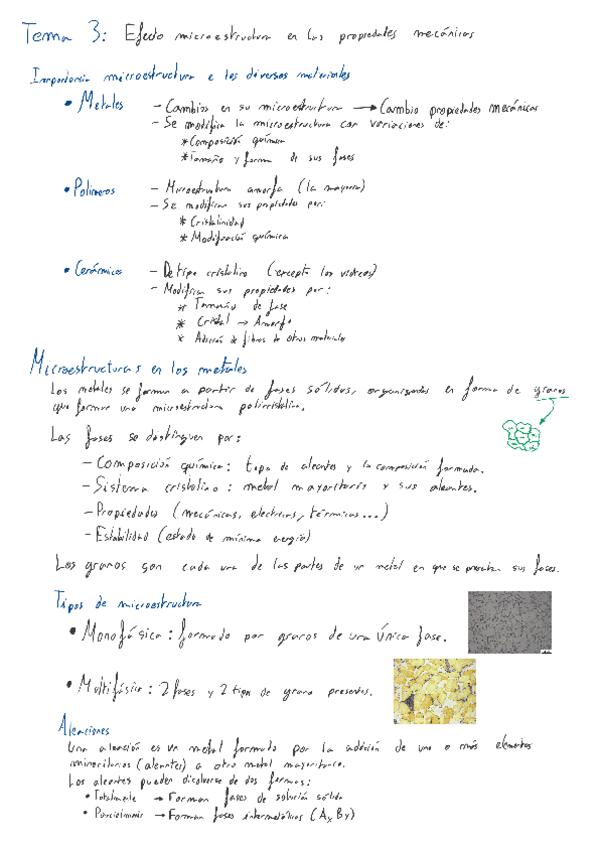 Tema 3: Efecto microestructura en las propiedades mecánicas
Importancia microestructura e los diversos materiales
• Metales - Cambios en su microestructura → Cambio propiedades mecánicas
- Se modifica la microestructura con variaciones de:
* Composición química
* Tamaño y forma de sus fases
• Polímeros - Microestructura amorfa (la mayoría)
- Se modifican sus propiedades por:
* Cristalinidad
* Modificación química
• Cerámicos - De tipo cristalino (excepto los vidreos)
- Modifican sus propiedades por:
* Tamaño de fase
* Cristal → Amorfo
* Adición de fibras de otros materiales
Microestructuras en los metales
Los metales se forman a partir de fases sólidas, organizadas en forma de granos
que forman una microestructura policristalina.
Las fases se distinguen por:
- Composición química: tipo de aleantes y la composición formada.
- Sistema cristalino: metal mayoritario y sus aleantes.
- Propiedades (mecánicas, electricas, térmicas...)
- Estabilidad (estado de mínima energía)
Los granos son cada una de las partes de un metal en que se presentan sus fases.
Tipos de microestructura
• Monofásica: formado por granos de una única fase.
• Multifásica: 2 fases y 2 tipos de grano presentes.
Aleaciones
Una aleación es un metal formado por la adición de uno o más elementos
minoritarios (aleantes) a otro metal mayoritario.
Los aleantes pueden disolverse de dos formas:
• Totalmente → Forman fases de solución sólida
• Parcialmente → Forman fases intermetálicas (Ax By)